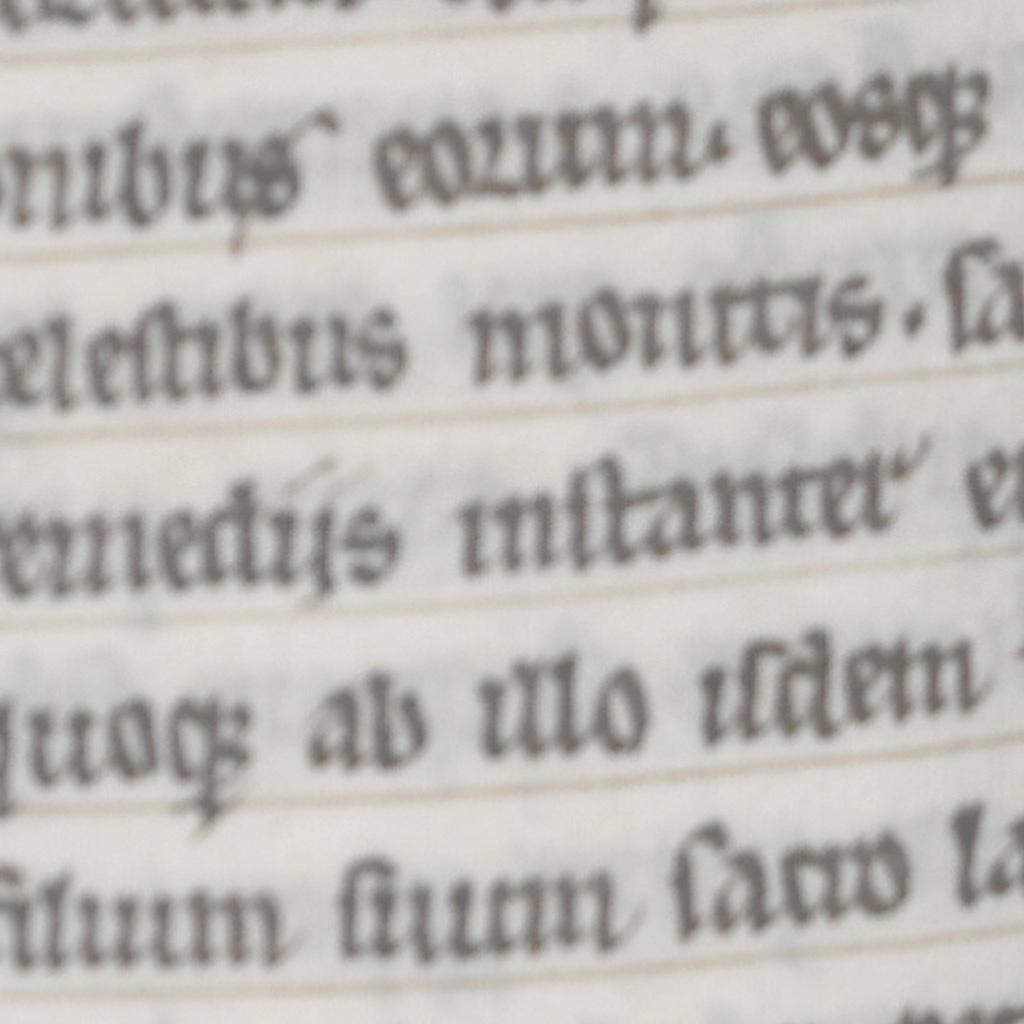 nibus eorum. eosqꝫ
elestibus monitis. sa
emedijs instanter e
quoqꝫ ab illo isdem
filium suum sacro la